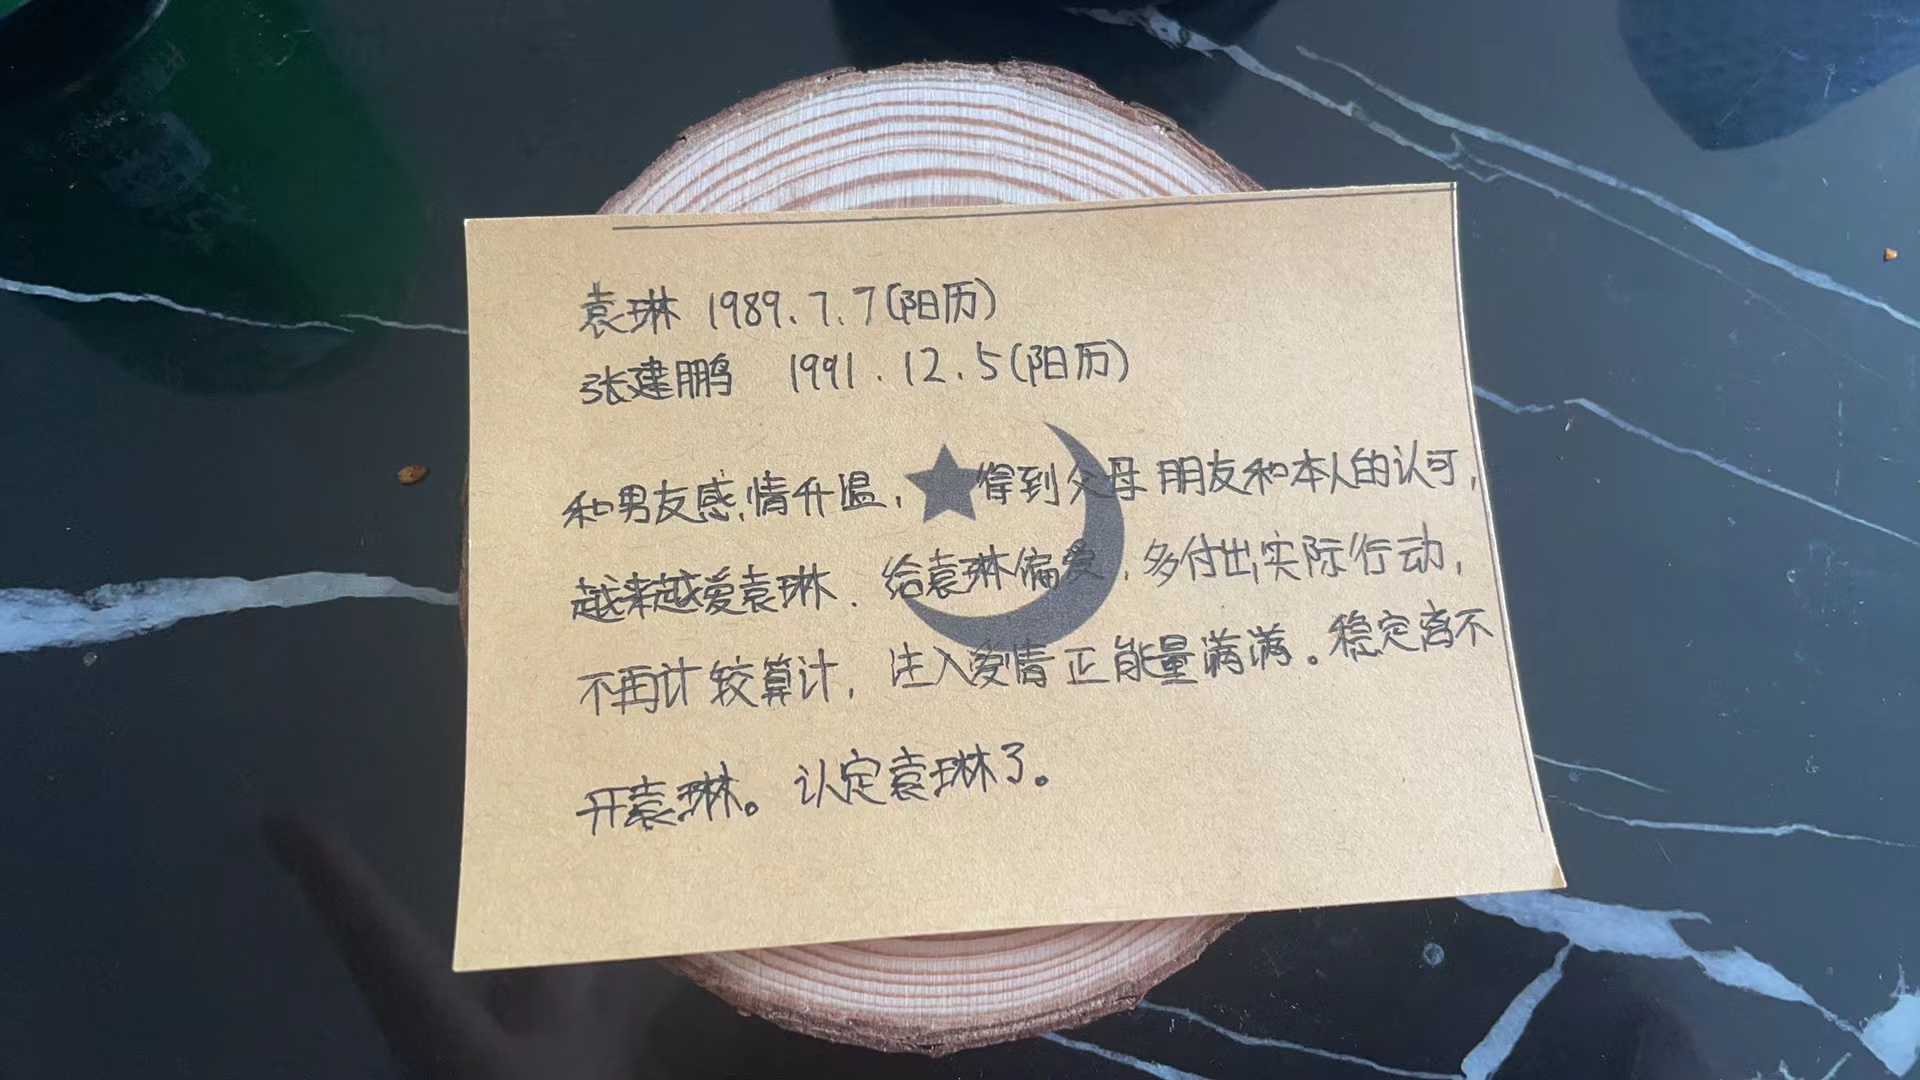 袁琳 1989.7.7(阳历)
张建鹏 1991.12.5(阳历)
和男友感情升温，得到父母朋友和本人的认可，
越来越爱袁琳、给袁琳偏爱，多付出实际行动，
不再计较算计，注入爱情正能量满满。稳定离不
开袁琳。认定袁琳了。